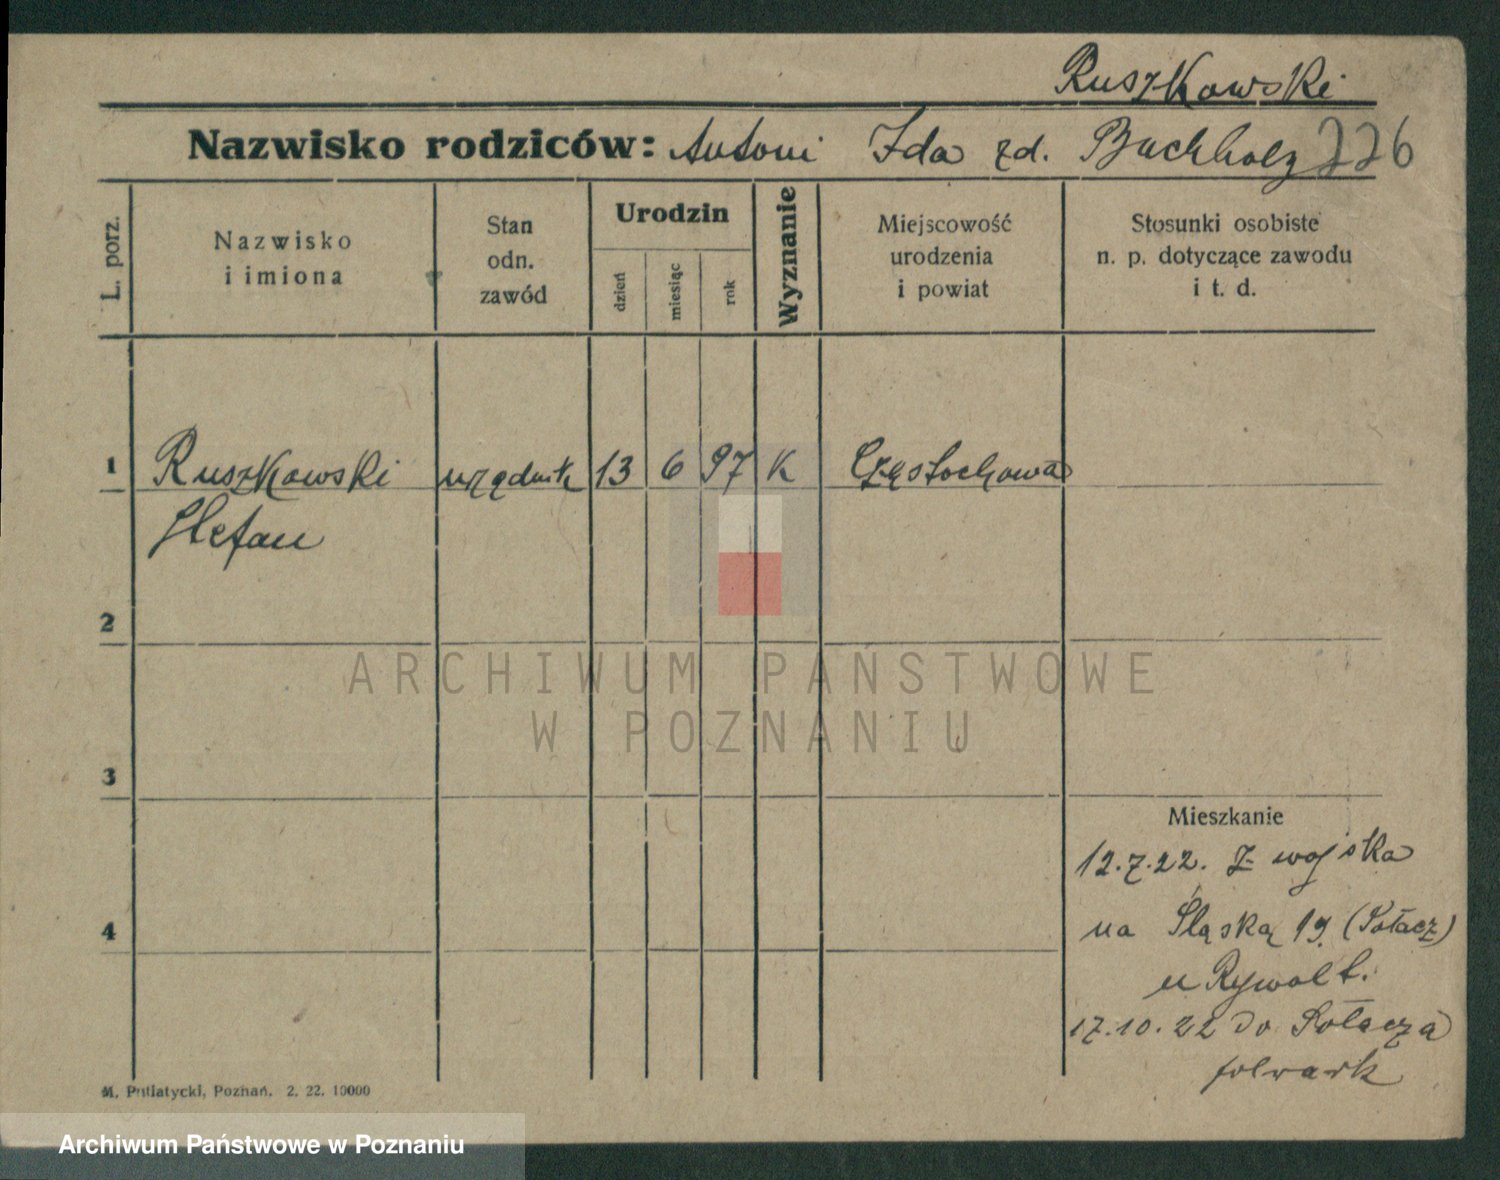 Ruszkowski
Nazwisko rodziców: Antoni Ida zd. Buchholz 226
L. porz.
Nazwisko
i imiona
Stan
odn.
zawód
Urodzin
dzień
miesiąc
rok
Wyznanie
Miejscowość
urodzenia
i powiat
Stosunki osobiste
n. p. dotyczące zawodu
i t. d.
1 Ruszkowski urzędnik 13 6 97 K Częstochowa
Stefan
2
3
4
Mieszkanie
12.7.22. Z wojska
na Śląską 19 (Sołacz)
u Rywolt.
17.10.22 do Sołacza
folwark
M. Putiatycki, Poznań. 2. 22. 10000
ARCHIWUM PAŃSTWOWE
W POZNANIU
Archiwum Państwowe w Poznaniu